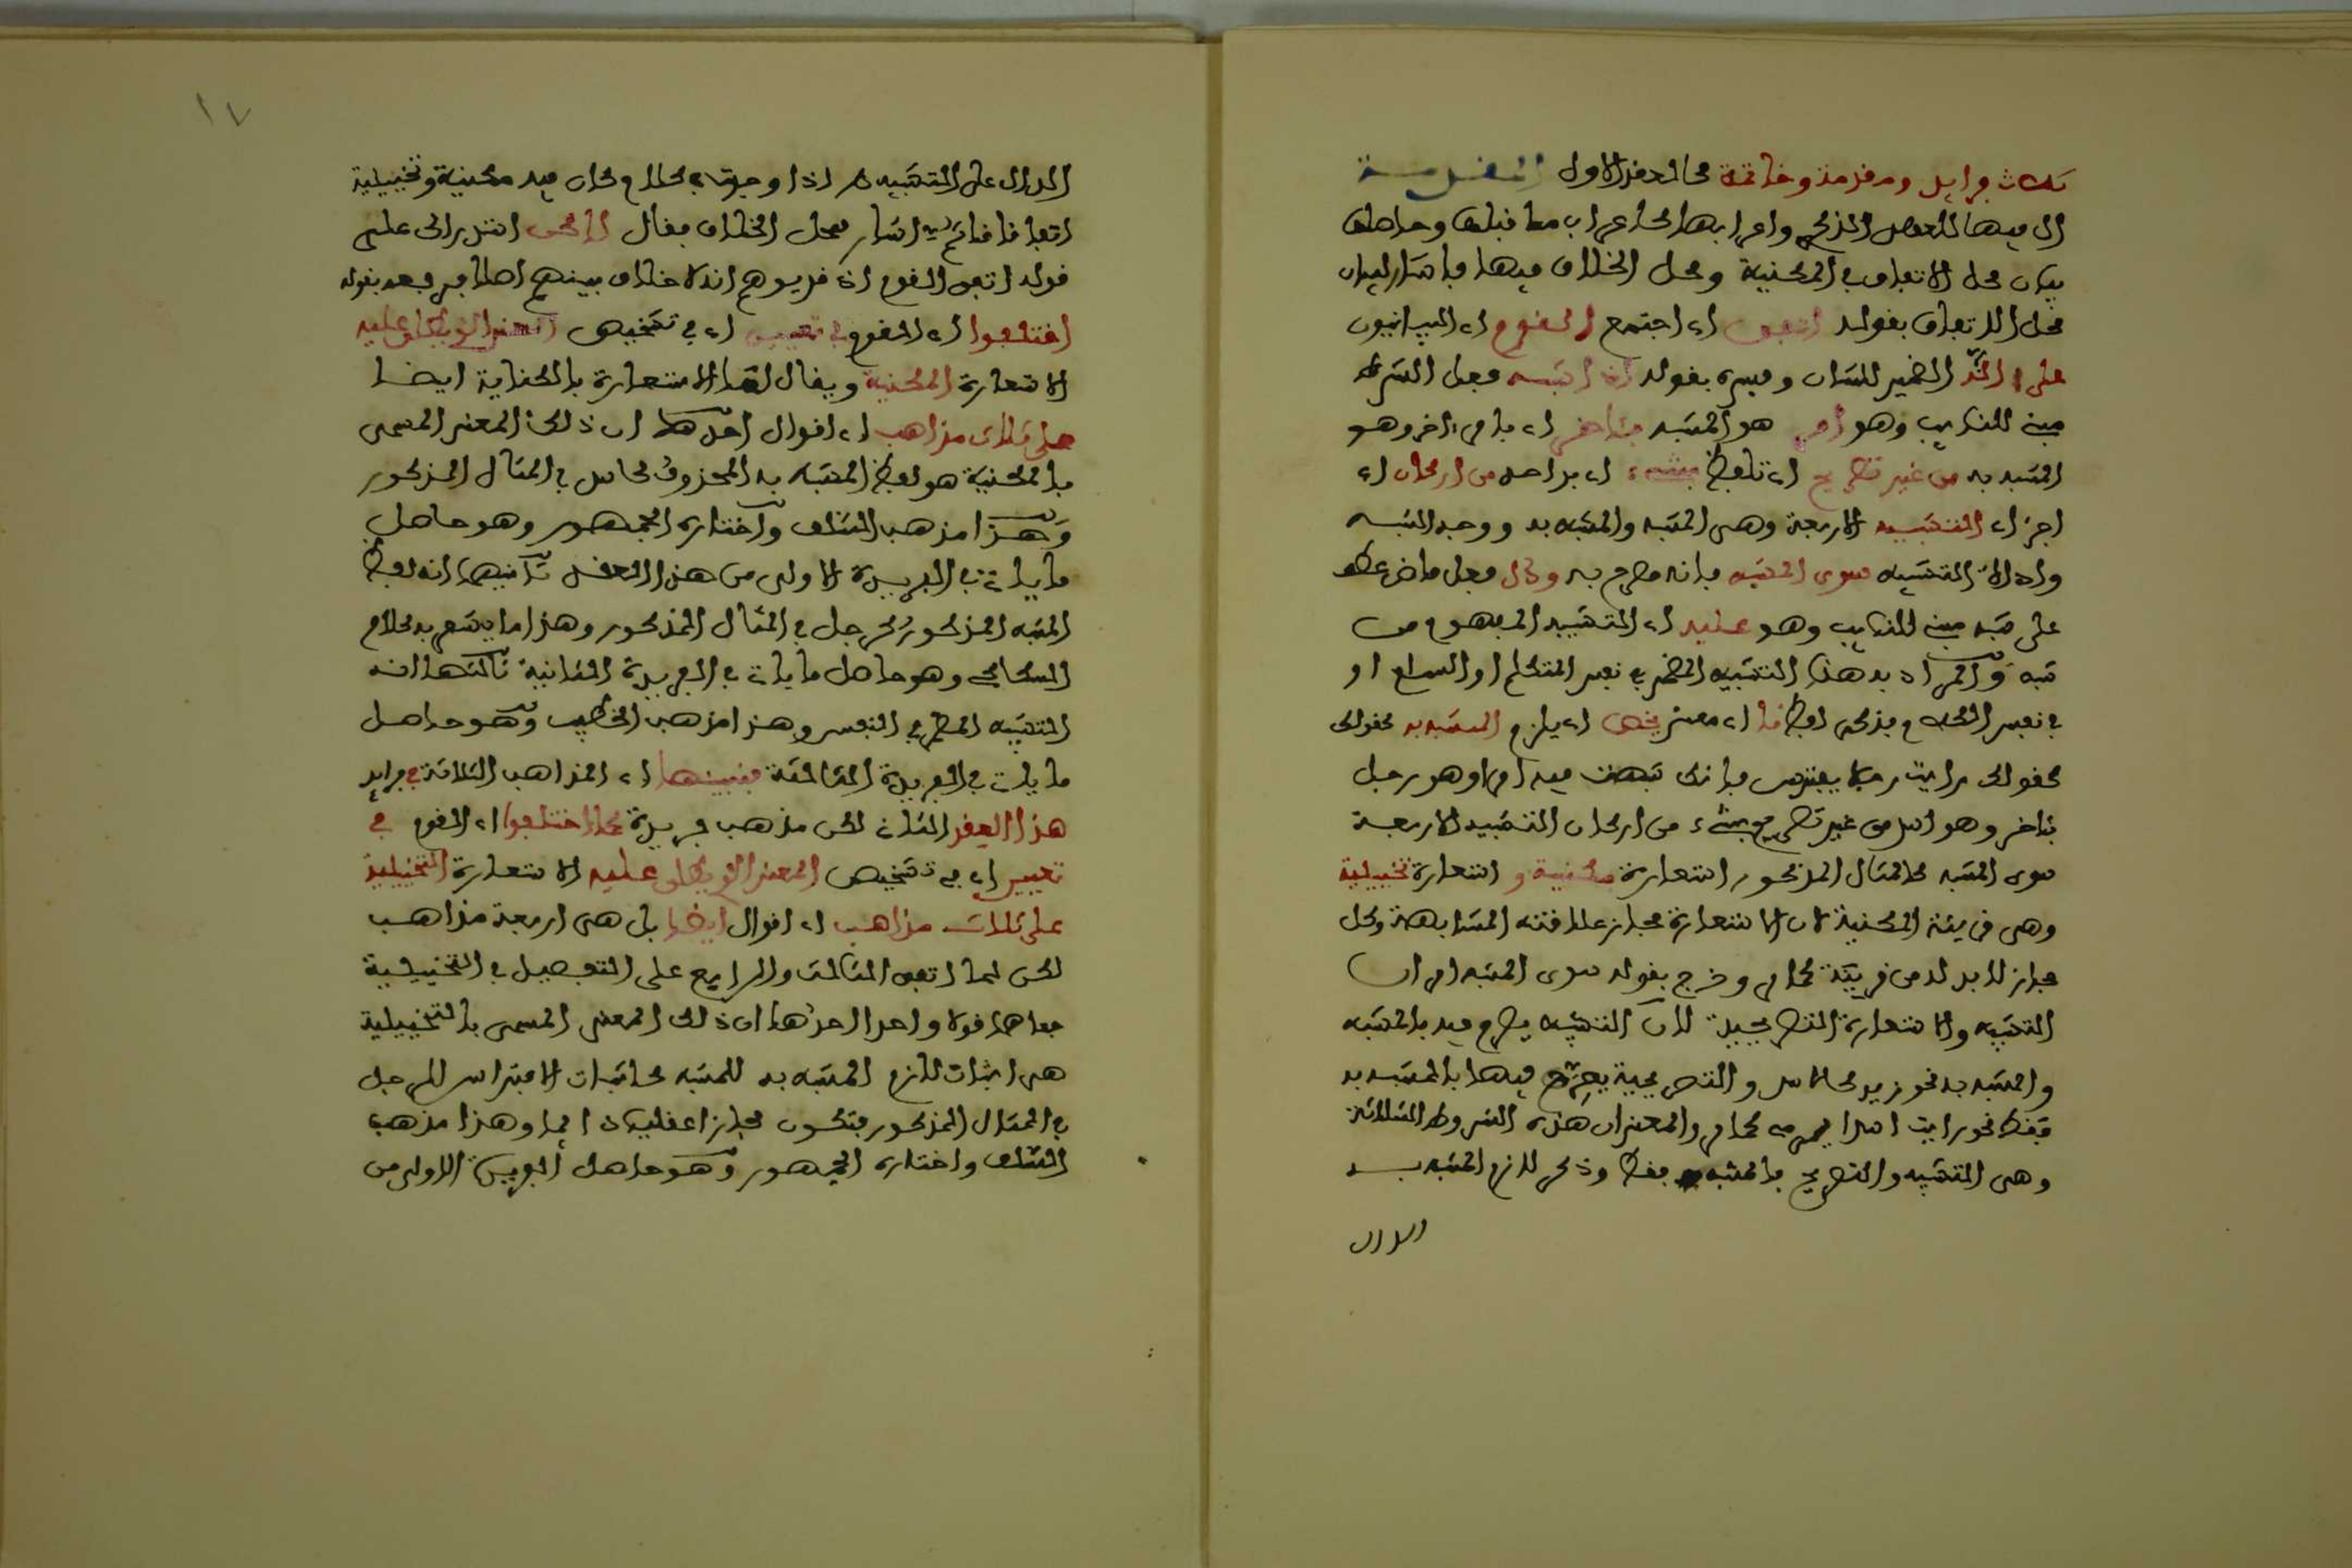 ثلاث فرايد ومقدمة وخاتمة كالعقد الاول المقدمة
ال فيها للعهد الذكري واعرابها كاعراب ما قبلها وحاصلها
بيان محل الاتفاق في المكنية ومحل الخلاف فيها فاشار لبيان
محل الاتفاق بقوله اتفق اي اجتمع القوم اي البيانيون
على انه الضمير للشان وفسره بقوله اذا شبه فعل الشرط
مبني للنايب وهو امر هو المشبه بئاخر اي بامر ءاخر وهو
المشبه به من غير تصريح اي تلفظ بشيء اي بواحد من اركان اي
اجزاء التشبيه الاربعة وهي المشبه والمشبه به ووجه الشبه
واداة التشبيه سوى المشبه فانه مصرح به ودل فعل ماض عطف
على شبه مبني للنايب وهو عليه اي التشبيه المفهوم من
شبه والمراد به هذا التشبيه المضمر في نفس المتكلم او السامع او
في نفس الكلام بذكر لفظ ما اي معنى يخص اي يلازم المشبه به كقولك
كقولك رايت رجلا يفترس فانك شبهت فيه امرا وهو رجل
بئاخر وهو اسد من غير تصريح بشيء من اركان التشبيه الاربعة
سوى المشبه كالمثال المذكور استعارة مكنية و استعارة تخييلية
وهي قرينة المكنية لان الاستعارة مجاز علاقته المشابهة وكل
مجاز لا بد له من قرينة كما مر وخرج بقوله سوى المشبه امران
التشبيه والاستعارة التصريحية لان التشبيه يصرح فيه بالمشبه
والمشبه به نحو زيد كالاسد والتصريحية يصرح فيها بالمشبه به
فقط نحو رايت اسدا يرمي كما مر والمعنى ان هذه الشروط الثلاثة
وهي التشبيه والتصريح بالمشبه فقط وذكر لازم المشبه به
الدال
١٧
الدال على التشبيه اذا وجدت في كلام كان فيه مكنية وتخييلية
اتفاقا ثم اشار لمحل الخلاف فقال لاكن استدراك على
قوله اتفق القوم اذ قد يوهم انه لا خلاف بينهم اصلا فرفعه بقوله
اختلفوا اي القوم في تعيين اي في تشخيص المعنى الذي يطلق عليه
الاستعارة المكنية ويقال لها الاستعارة بالكناية ايضا
على ثلاث مذاهب اي اقوال احدها ان ذلك المعنى المسمى
بالمكنية هو لفظ المشبه به المحذوف كاسد في المثال المذكور
وهذا مذهب السلف واختاره الجمهور وهو حاصل
ما ياتي في الفريدة الاولى من هذا العقد ثانيها انه لفظ
المشبه المذكور كرجل في المثال المذكور وهذا ما يشعر به كلام
السكاكي وهو حاصل ما ياتي في الفريدة الثانية ثالثها انه
التشبيه المضمر في النفس وهذا مذهب الخطيب وهو حاصل
ما ياتي في الفريدة الثالثة فنبينها اي المذاهب الثلاثة في فرايد
هذا العقد الثلاث لكل مذهب فريدة كما اختلفوا اي القوم في
تعيين اي في تشخيص المعنى الذي يطلق عليه الاستعارة التخييلية
على ثلاث مذاهب اي اقوال ايضا بل هي اربعة مذاهب
لكن لما اتفق الثالث والرابع على التفصيل في التخييلية
جعلاهما قولا واحدا احدها ان ذلك المعنى المسمى بالتخييلية
هي اثبات لازم المشبه به للمشبه كاثبات الافتراس للرجل
في المثال المذكور فتكون مجازا عقليا دايما وهذا مذهب
السلف واختاره الجمهور وهو حاصل الفريدة الاولى من